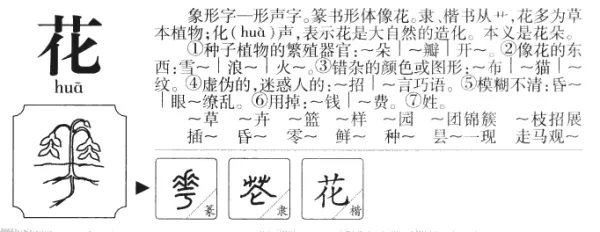 花
huā
象形字—形声字。篆书形体像花。隶、楷书从艹,花多为草
本植物;化(huà)声,表示花是大自然的造化。本义是花朵。
①种子植物的繁殖器官:~朵│~瓣│开~。②像花的东
西:雪~│浪~│火~。③错杂的颜色或图形:~布│~猫│~
纹。④虚伪的,迷惑人的:~招│~言巧语。⑤模糊不清:昏~
│眼~缭乱。⑥用掉:~钱│~费。⑦姓。
~草 ~卉 ~篮 ~样 ~园 ~团锦簇 ~枝招展
插~ 昏~ 零~ 鲜~ 种~ 昙~一现 走马观~
篆
花
隶
花
楷